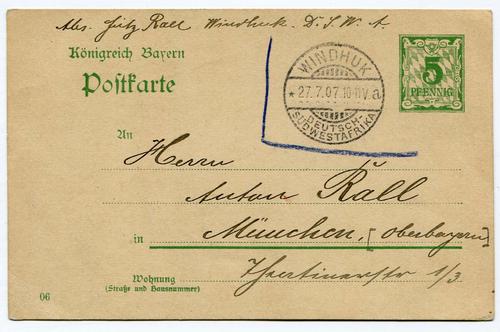 Abs. Fritz Rall Windhuk. D. S. W. A.
Königreich Bayern
Postkarte
WINDHUK
* 27.7.07.10-11V. a
DEUTSCH-
SÜDWESTAFRIKA
5
PFENNIG
An
Herrn
Anton Rall
in München, [Oberbayern]
Wohnung
(Straße und Hausnummer)
Theatinerstr 1/3
06